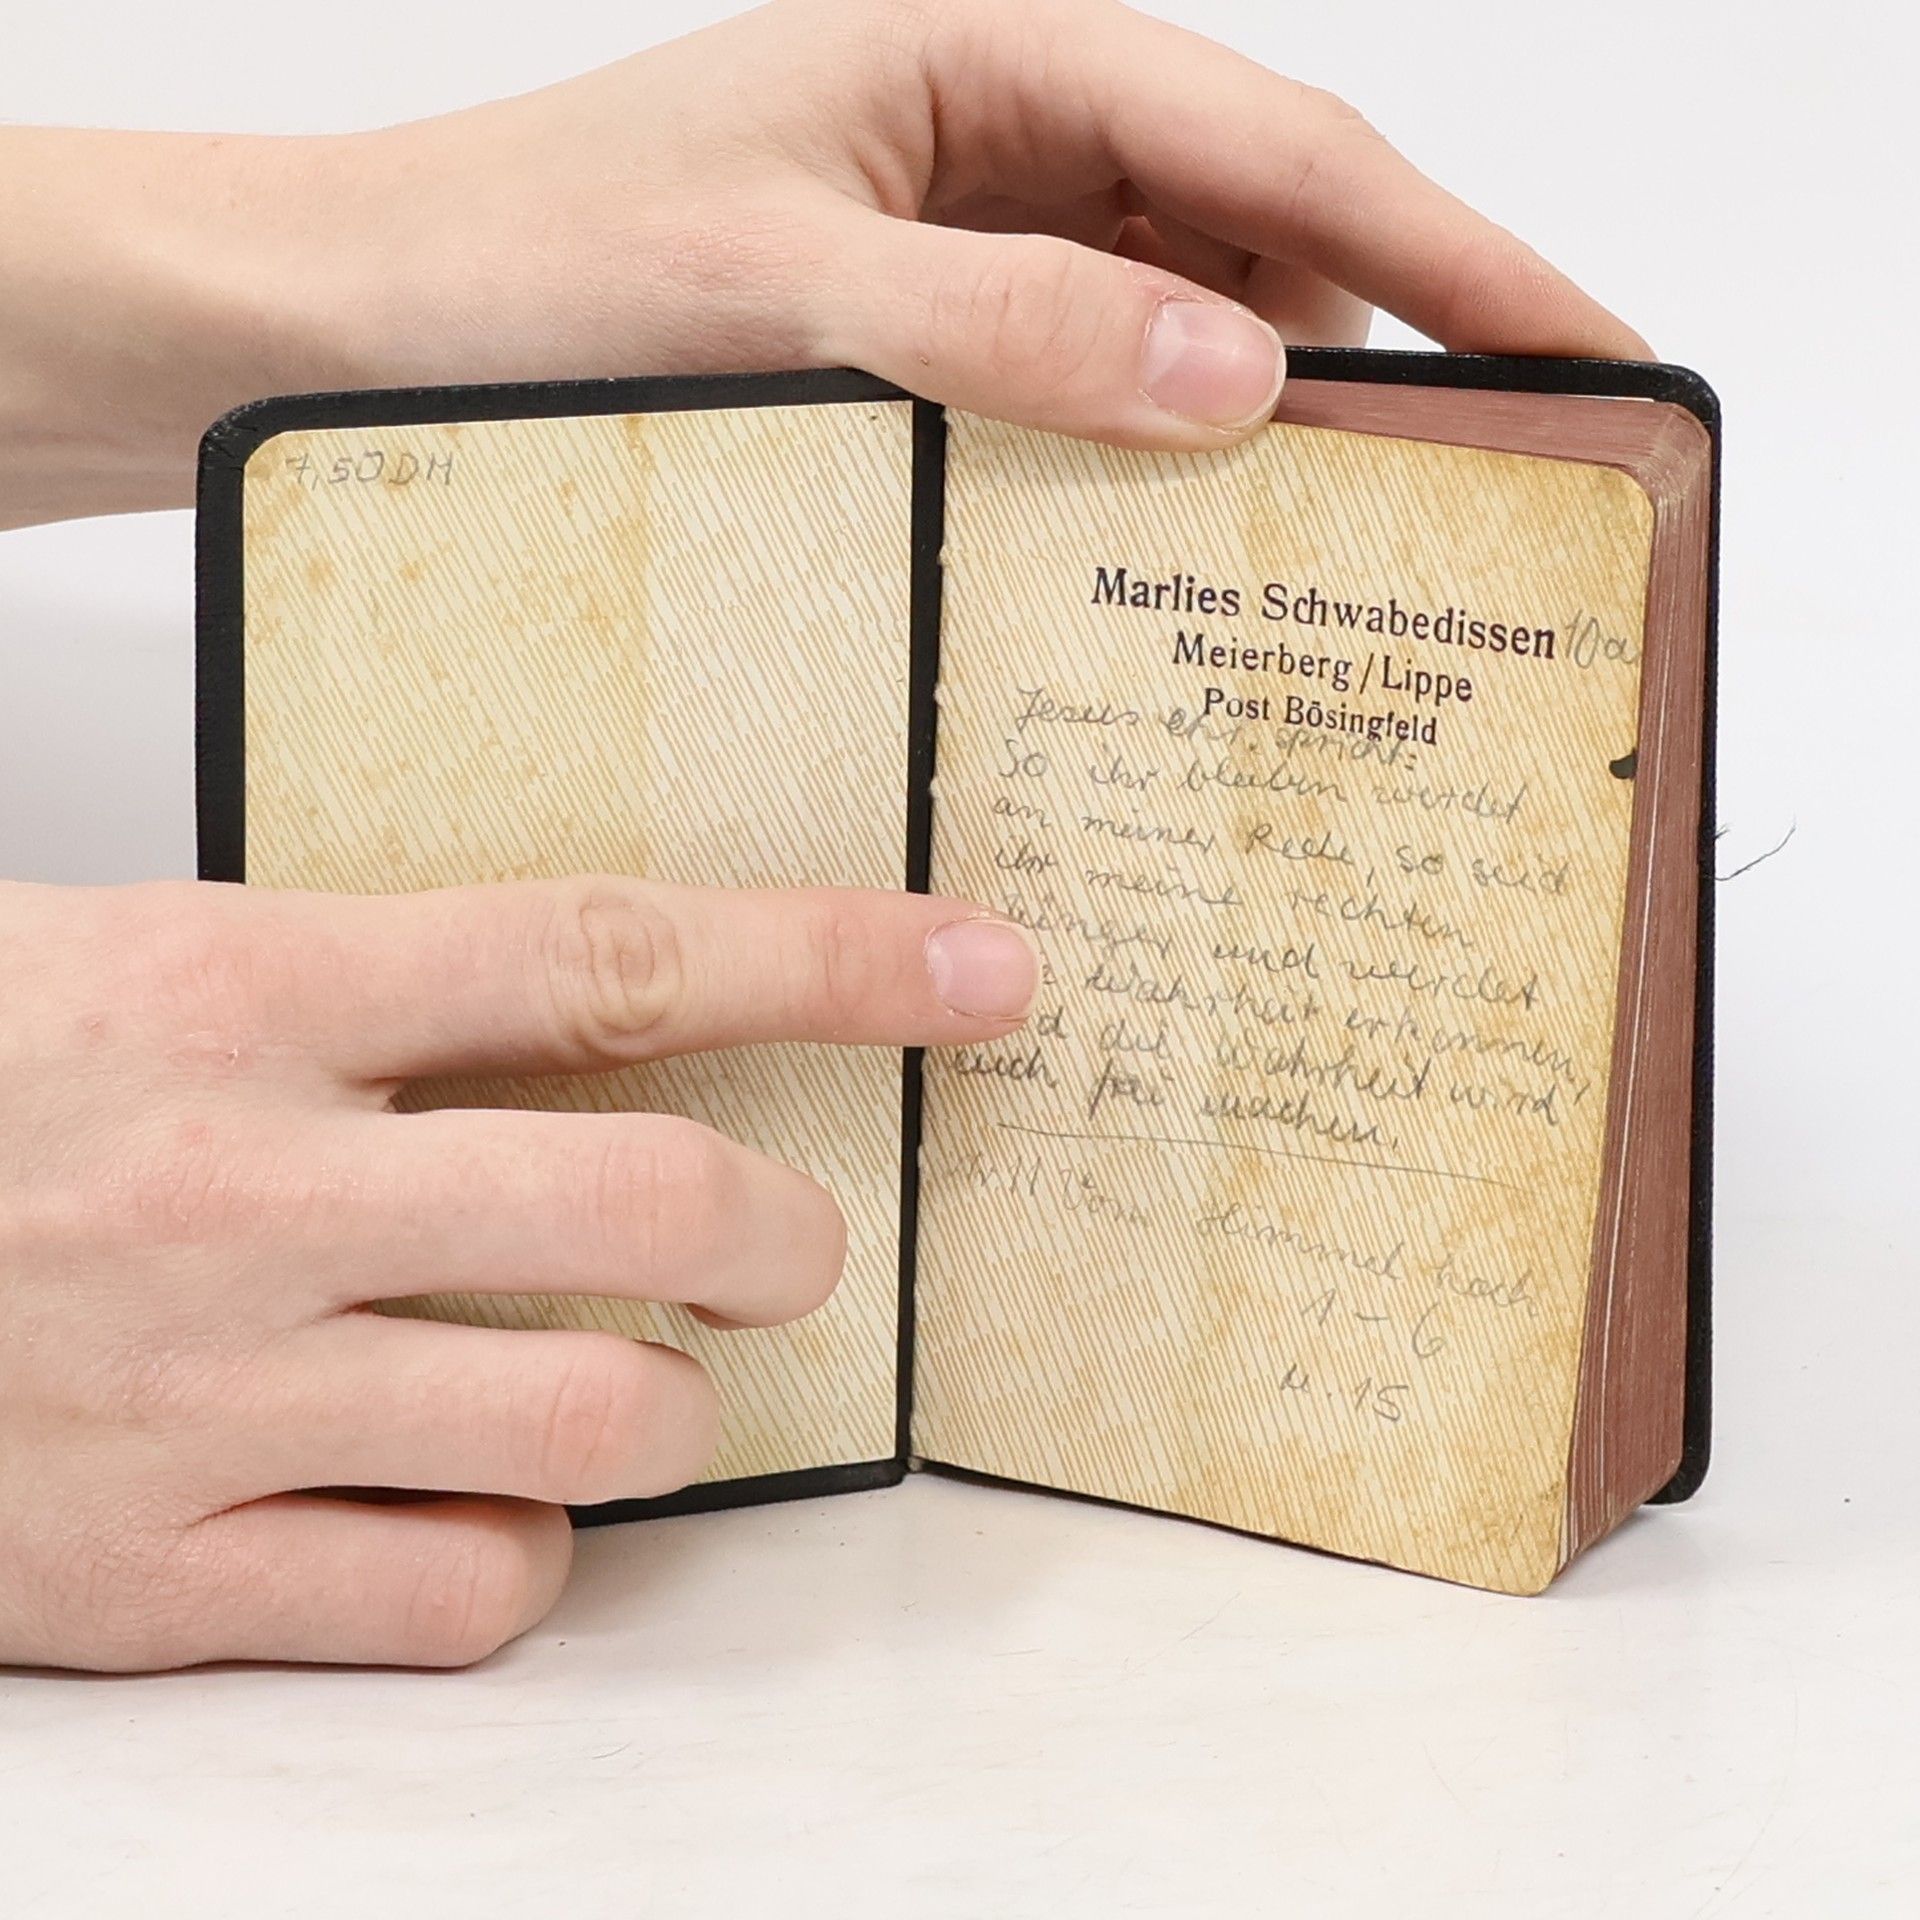 7,50 DM
Marlies Schwabedissen 10a
Meierberg / Lippe
Post Bösingfeld
Jesus chr. spricht:
So ihr bleiben werdet
an meiner Rede, so seid
ihr meine rechten
Jünger und werdet
Wahrheit erkennen,
die Wahrheit wird
euch frei machen.
Nr. 11 Vom Himmel hoch
1 - 6
u. 15